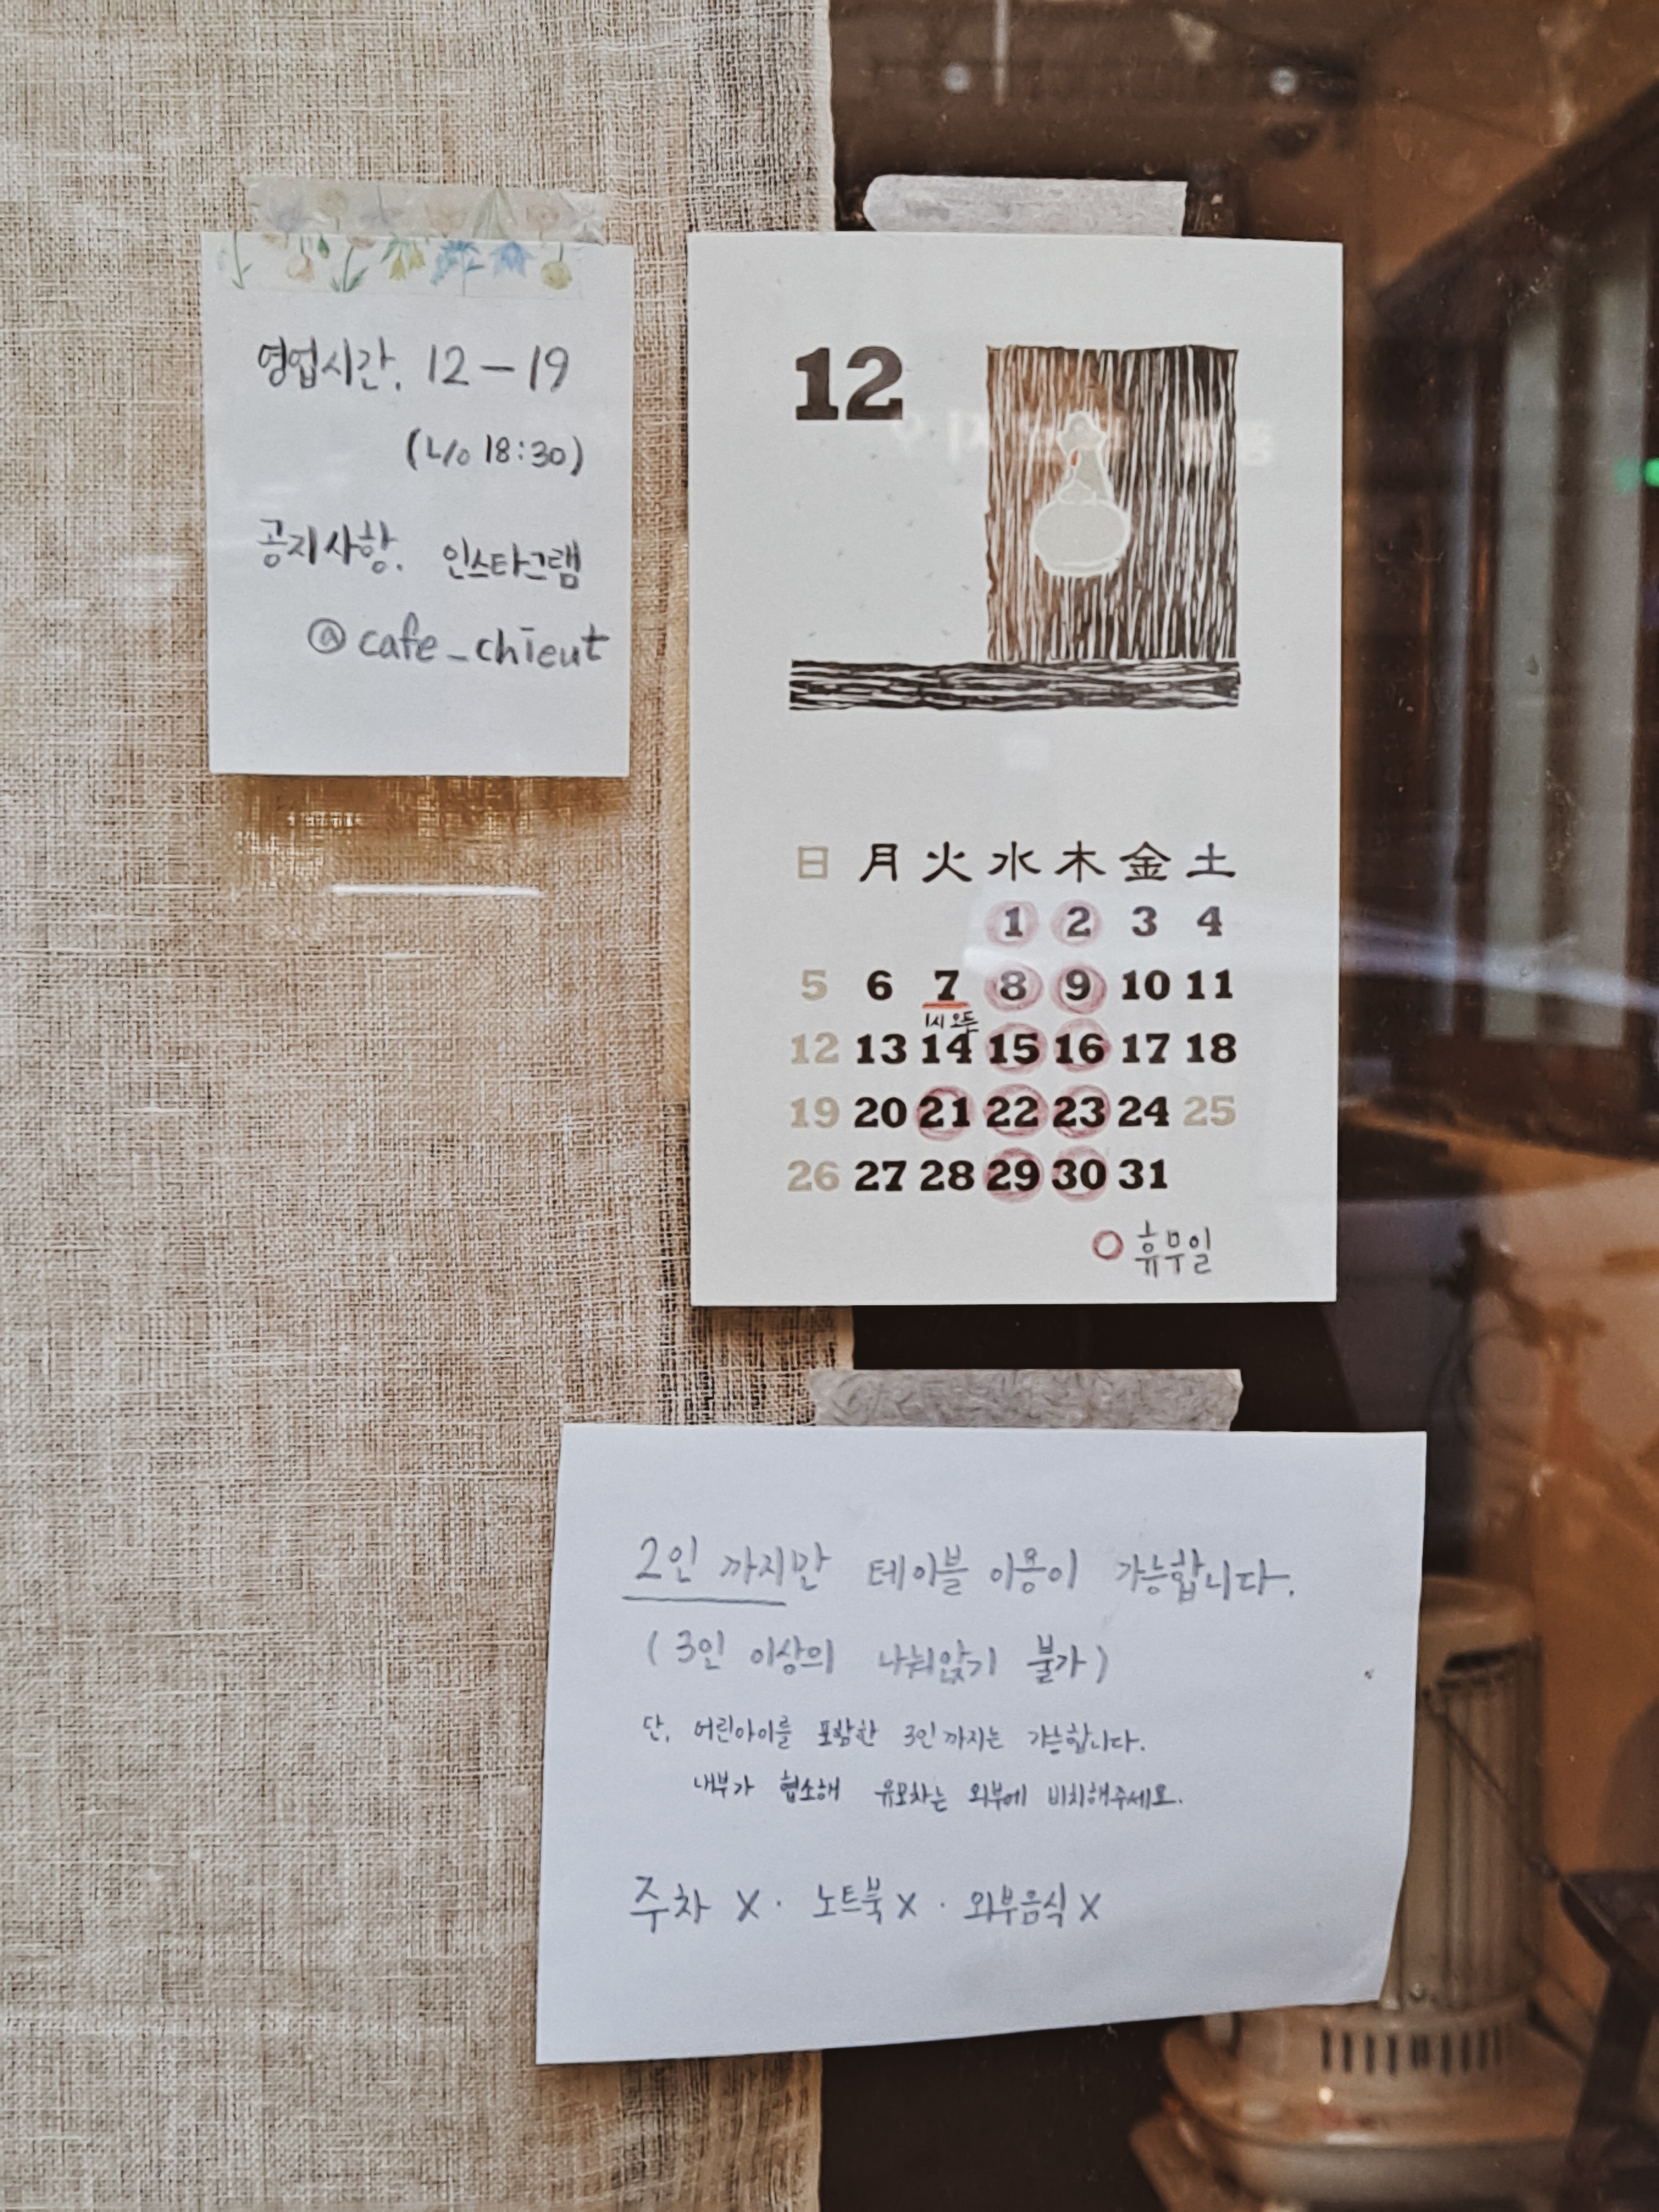 영업시간. 12 – 19
(L/o 18:30)
공지사항. 인스타그램
@cafe_chieut
12
日 月 火 水 木 金 土
1 2 3 4
5 6 7 8 9 10 11
1시 오픈
12 13 14 15 16 17 18
19 20 21 22 23 24 25
26 27 28 29 30 31
○ 휴무일
2인 까지만 테이블 이용이 가능합니다.
(3인 이상의 나눠앉기 불가)
단, 어린아이를 포함한 3인까지는 가능합니다.
내부가 협소해 유모차는 외부에 비치해주세요.
주차 X · 노트북 X · 외부음식 X